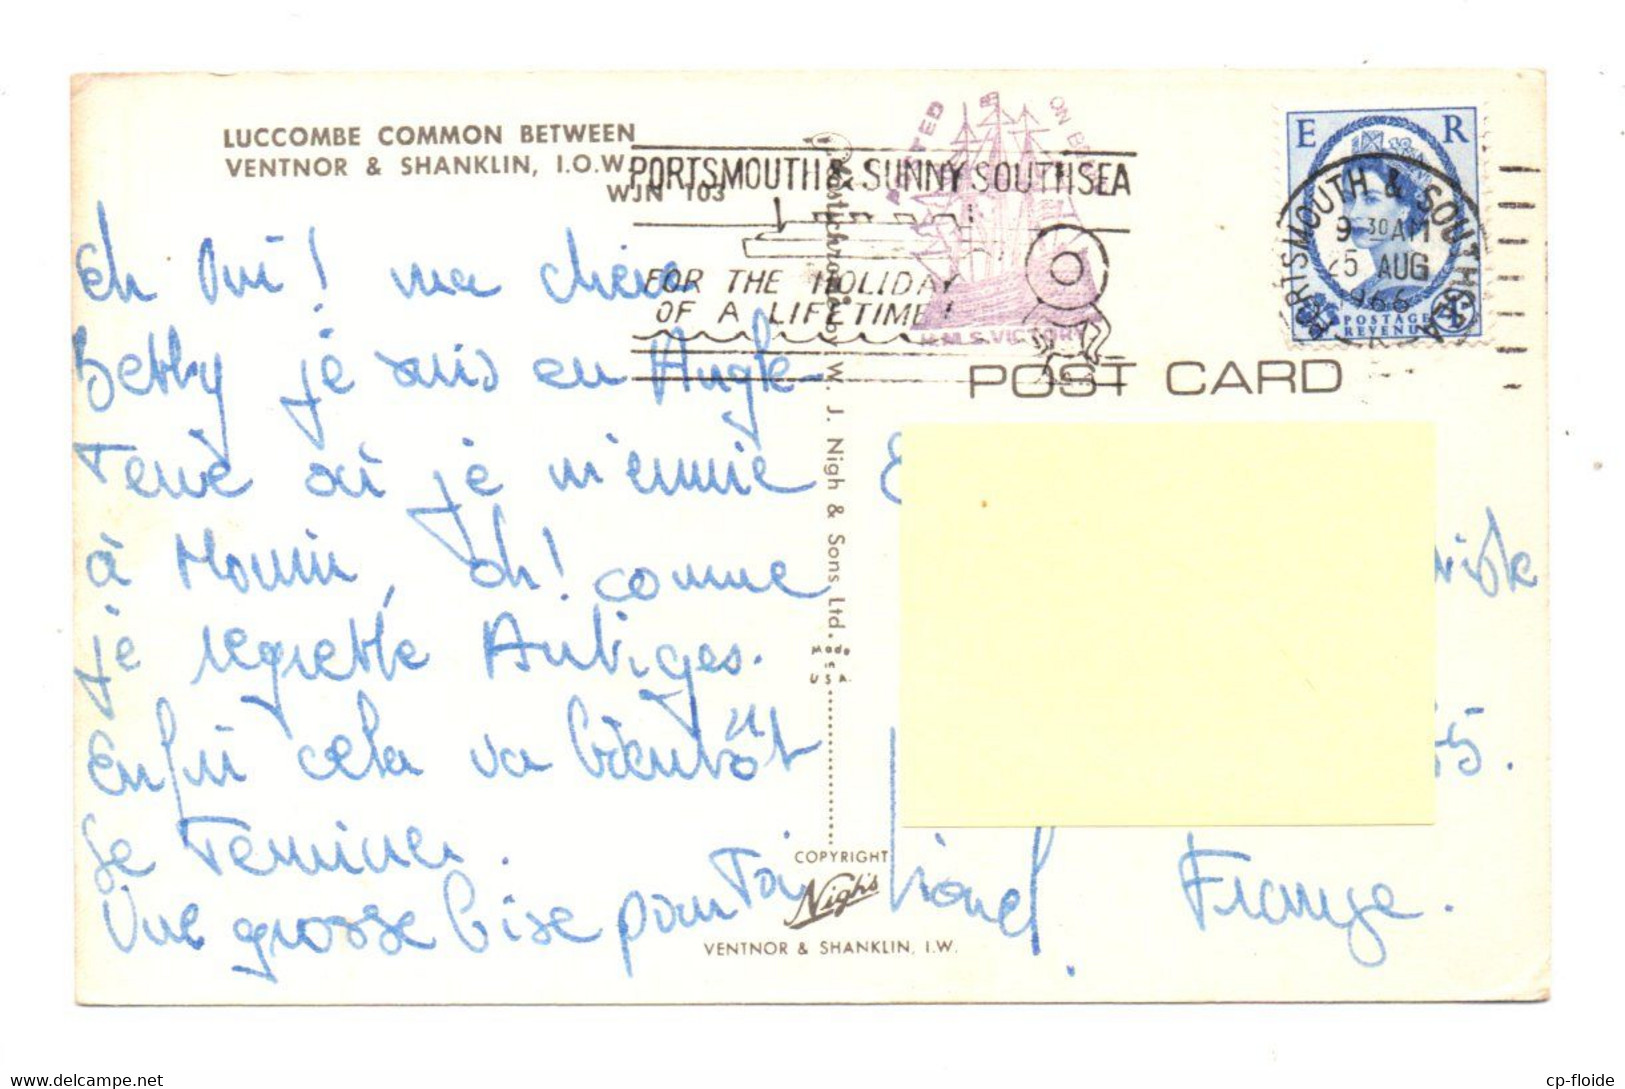 LUCCOMBE COMMON BETWEEN
VENTNOR & SHANKLIN, I.O.W.
WJN 103
PORTSMOUTH & SUNNY SOUTHSEA
FOR THE HOLIDAY
OF A LIFETIME!
POSTED ON B
H.M.S. VICTORY
E R
POSTAGE
REVENUE
PORTSMOUTH & SOUTHSEA
9 30 AM
25 AUG
1966
POST CARD
Eh oui! ma chère
Betty je suis en Angle-
Terre où je m'ennuie
à Mourir, oh! comme
je regrette Antiges.
Enfin cela va bientôt
se Terminer.
Une grosse bise pour Toi Lionel.
55.
France.
by W. J. Nigh & Sons Ltd.
Made
in
U.S.A.
COPYRIGHT
Nigh's
VENTNOR & SHANKLIN, I.W.
cp-floide